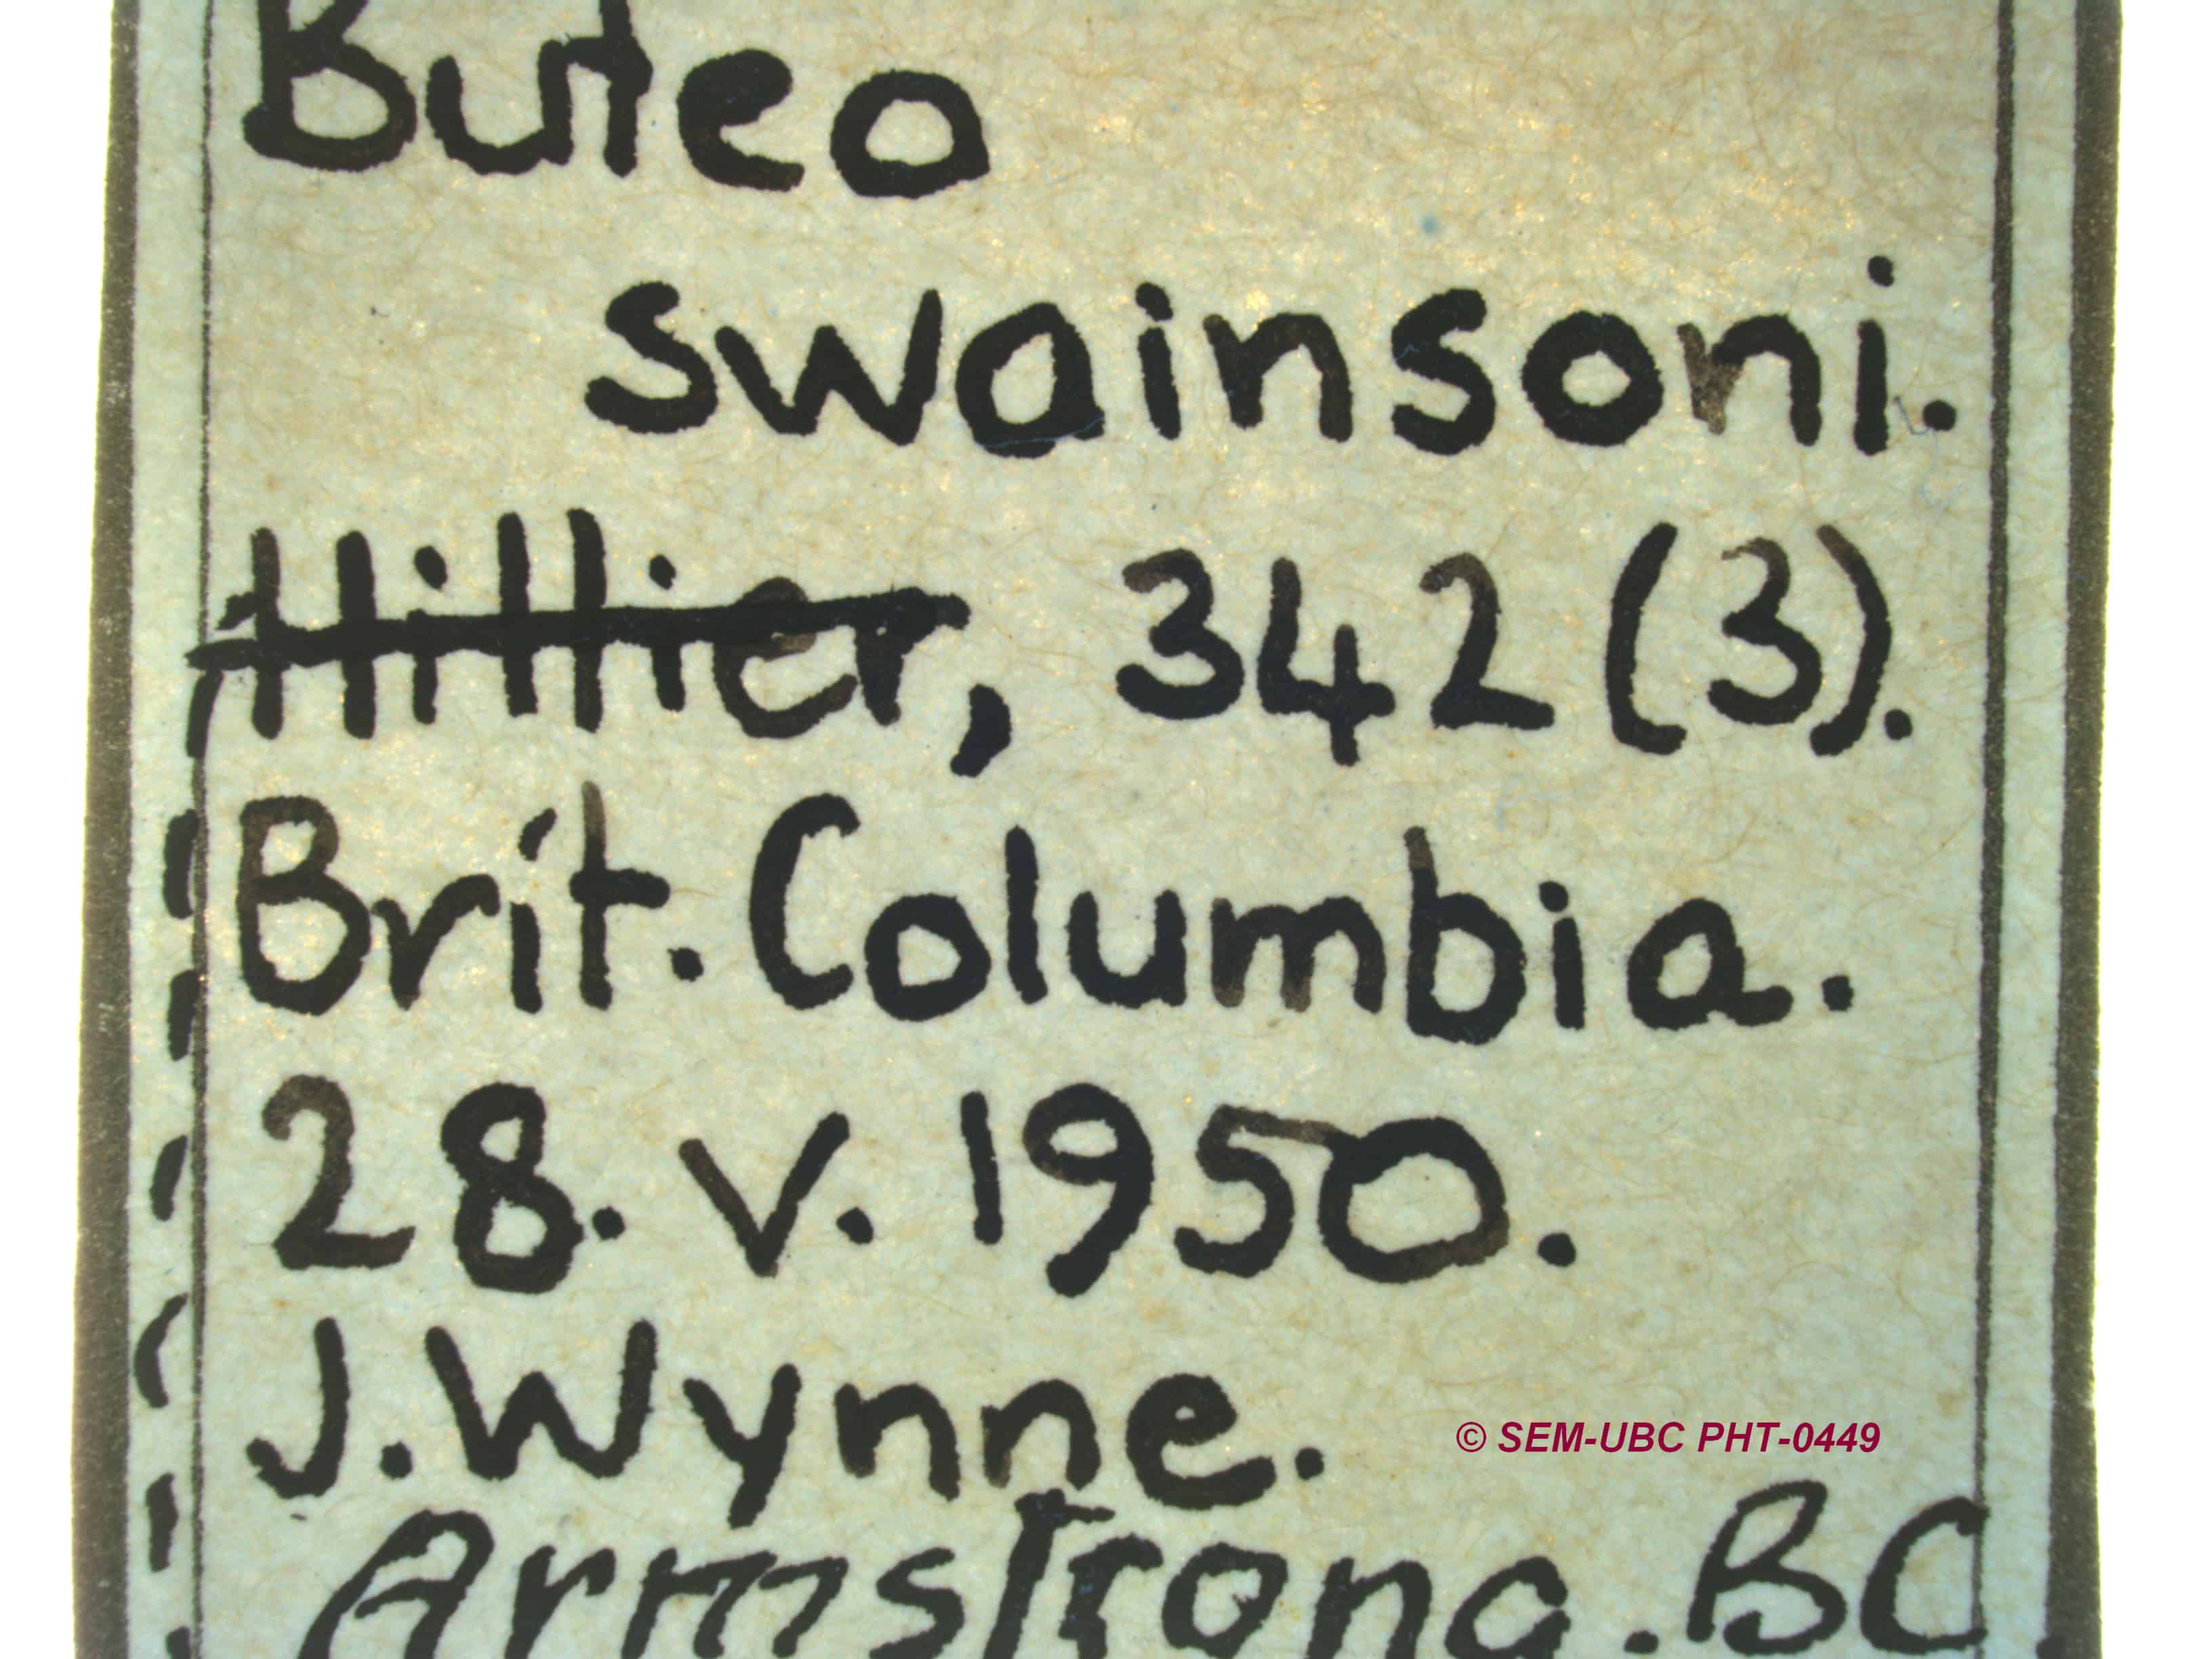 Buteo
swainsoni.
Hillier, 342(3).
Brit. Columbia.
28. V. 1950.
J. Wynne.
© SEM-UBC PHT-0449
Armstrong. BC.